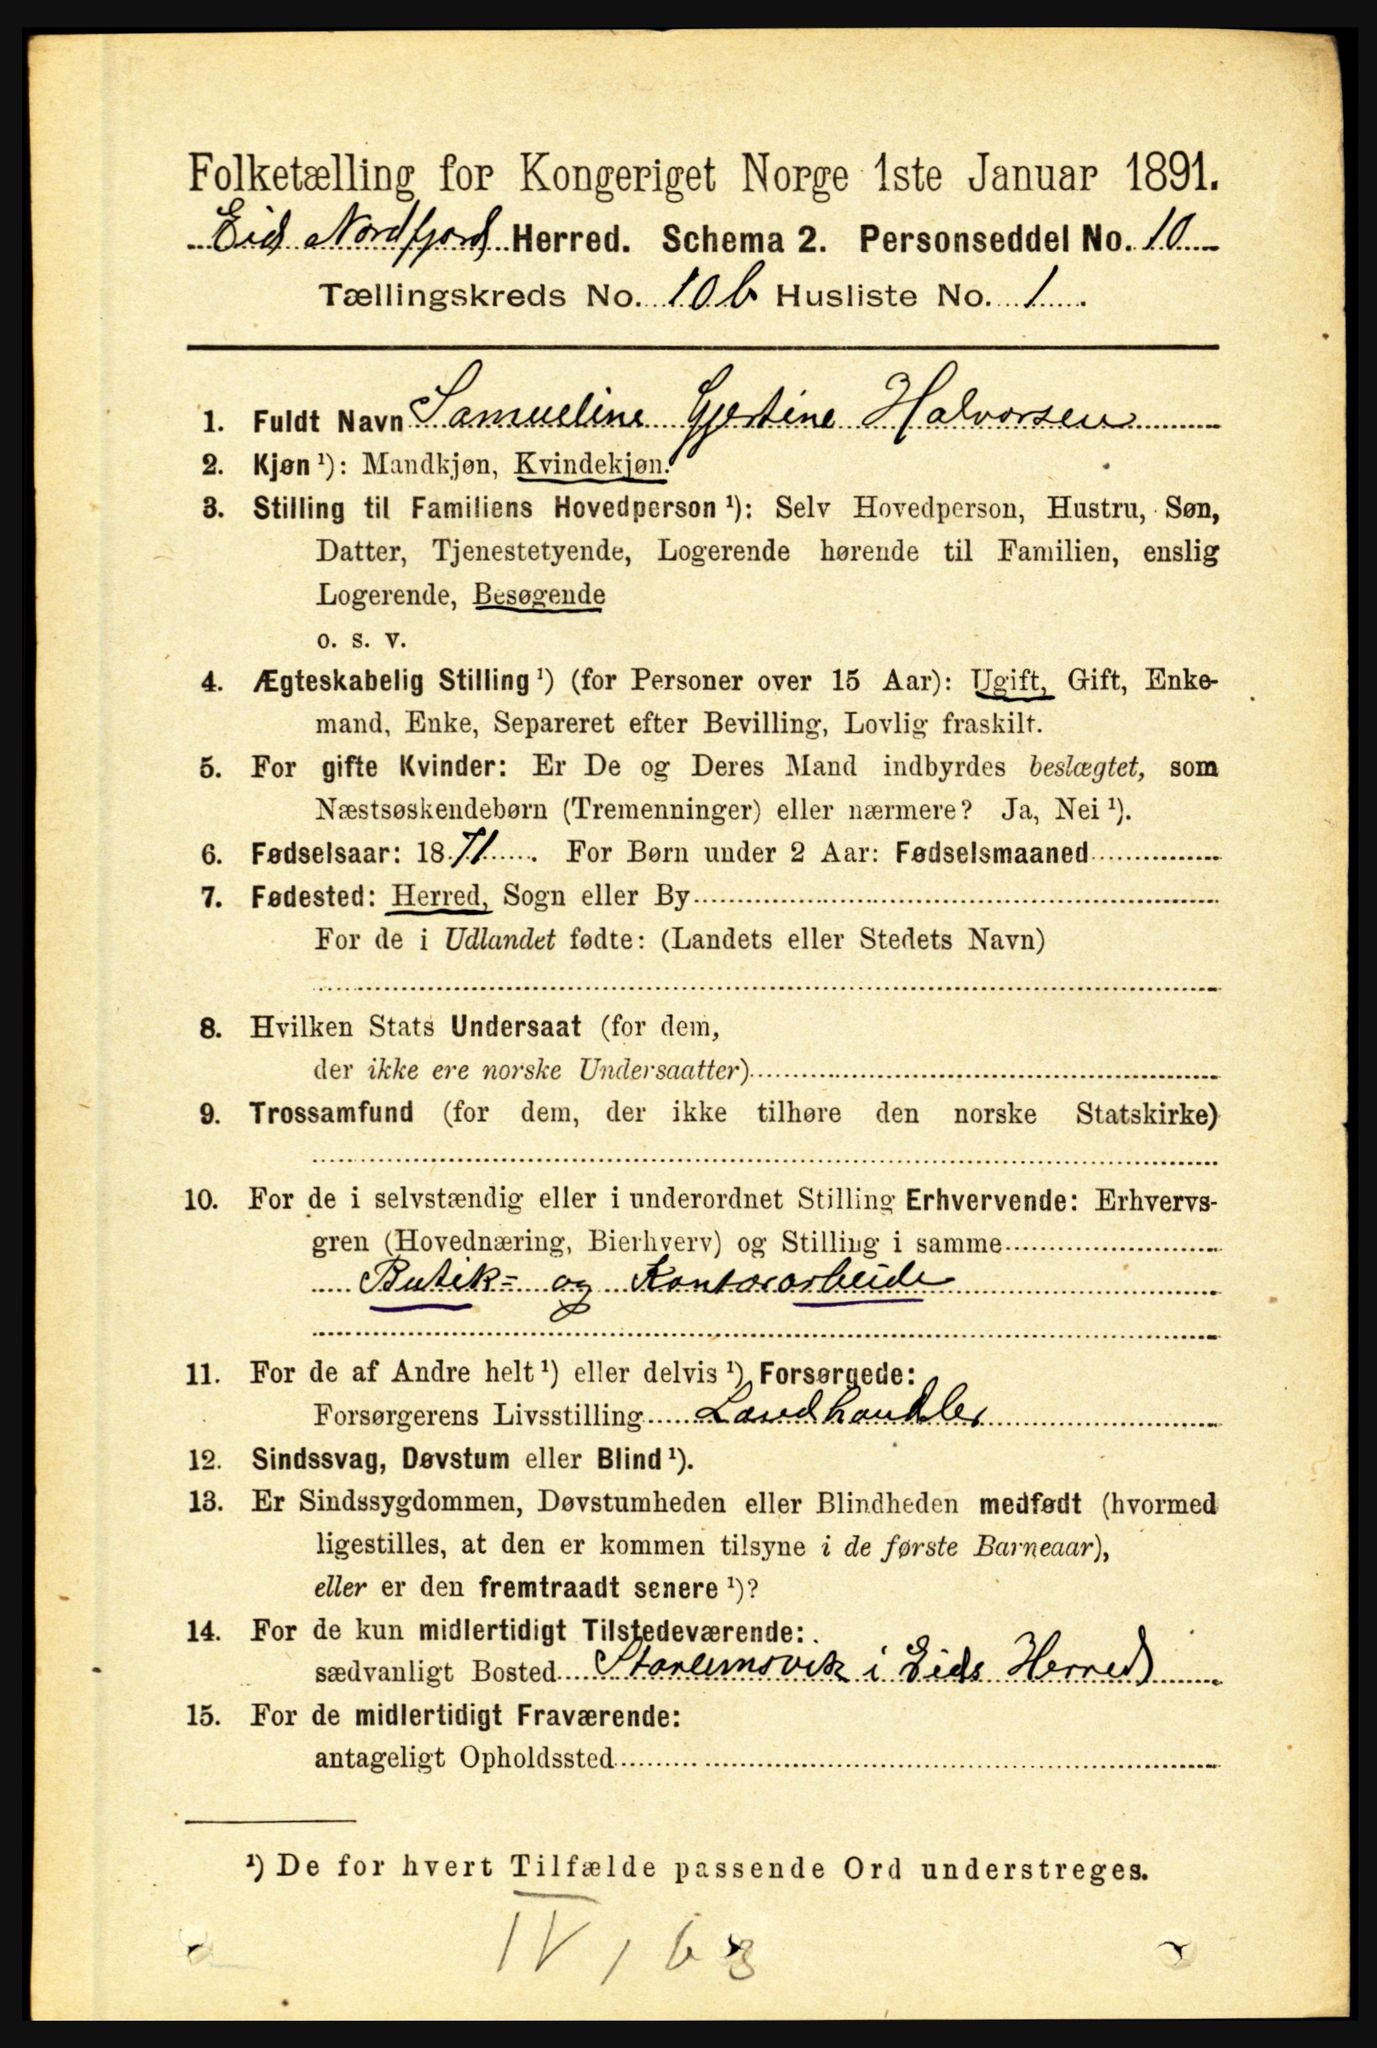 Folketælling for Kongeriget Norge 1ste Januar 1891.
Eid Nordfjord Herred. Schema 2. Personseddel No. 10
Tællingskreds No. 10b Husliste No. 1.
1. Fuldt Navn Samueline Gjertine Halvorsen
2. Kjøn ¹): Mandkjøn, Kvindekjøn.
3. Stilling til Familiens Hovedperson ¹): Selv Hovedperson, Hustru, Søn,
Datter, Tjenestetyende, Logerende hørende til Familien, enslig
Logerende, Besøgende
o. s. v.
4. Ægteskabelig Stilling ¹) (for Personer over 15 Aar): Ugift, Gift, Enke-
mand, Enke, Separeret efter Bevilling, Lovlig fraskilt.
5. For gifte Kvinder: Er De og Deres Mand indbyrdes beslægtet, som
Næstsøskendebørn (Tremenninger) eller nærmere? Ja, Nei ¹).
6. Fødselsaar: 1871. For Børn under 2 Aar: Fødselsmaaned
7. Fødested: Herred, Sogn eller By
For de i Udlandet fødte: (Landets eller Stedets Navn)
8. Hvilken Stats Undersaat (for dem,
der ikke ere norske Undersaatter)
9. Trossamfund (for dem, der ikke tilhøre den norske Statskirke)
10. For de i selvstændig eller i underordnet Stilling Erhvervende: Erhvervs-
gren (Hovednæring, Bierhverv) og Stilling i samme
Butik- og Kontorarbeide
11. For de af Andre helt ¹) eller delvis ¹) Forsørgede:
Forsørgerens Livsstilling Landhandler
12. Sindssvag, Døvstum eller Blind ¹).
13. Er Sindssygdommen, Døvstumheden eller Blindheden medfødt (hvormed
ligestilles, at den er kommen tilsyne i de første Barneaar),
eller er den fremtraadt senere ¹)?
14. For de kun midlertidigt Tilstedeværende:
sædvanligt Bosted i Eids Herred
15. For de midlertidigt Fraværende:
antageligt Opholdssted
¹) De for hvert Tilfælde passende Ord understreges.
IV, 63